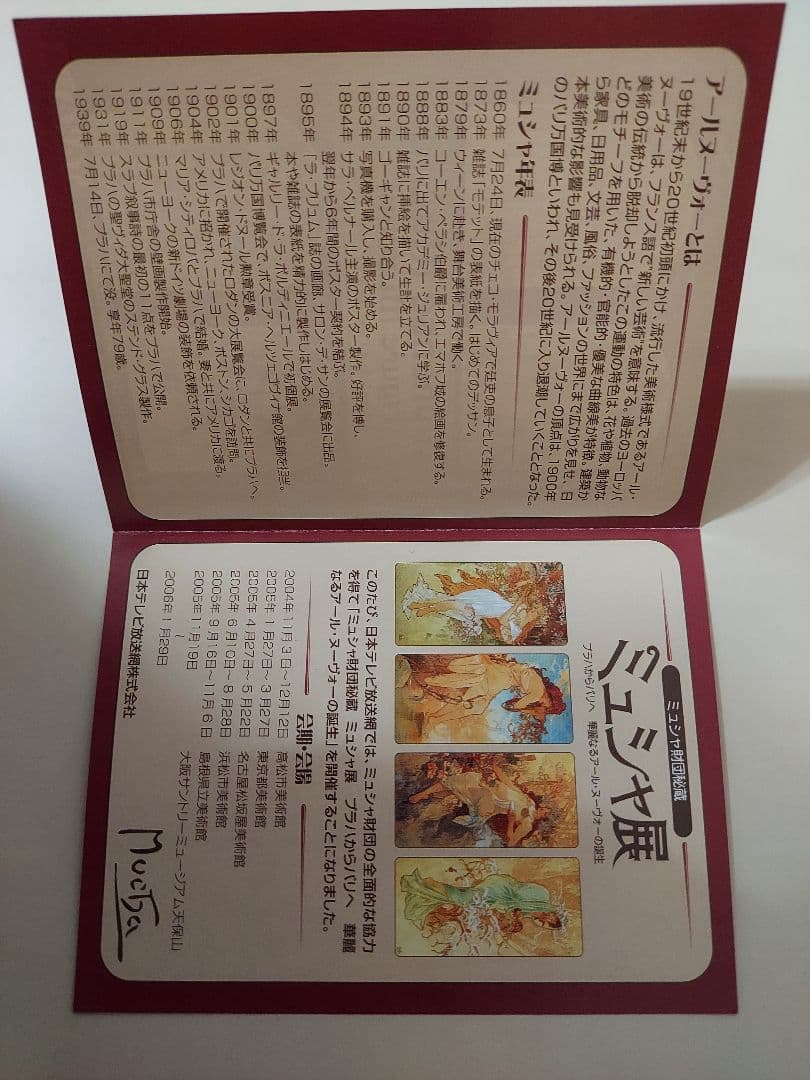 アールヌーヴォーとは
19世紀末から20世紀初頭にかけ、流行した美術様式であるアール・
ヌーヴォーは、フランス語で"新しい芸術"を意味する。過去のヨーロッパ
美術の伝統から脱却しようとしたこの運動の特色は、花や植物、動物な
どのモチーフを用いた、有機的・官能的・優美な曲線美が特徴。建築か
ら家具、日用品、文芸、風俗、ファッションの世界にまで広がりを見せ、日
本美術的な影響も見受けられる。アールヌーヴォーの頂点は、1900年
のパリ万国博といわれ、その後20世紀に入り退潮していくこととなった。
ミュシャ年表
1860年 7月24日、現在のチェコ・モラヴィアで廷吏の息子として生まれる。
1873年 雑誌「モデット」の表紙を描く。はじめてのデッサン。
1879年 ウィーンに赴き、舞台美術工房で働く。
1883年 コーエン・ベラシ伯爵に雇われ、エマホフ城の絵画を修復する。
1888年 パリに出てアカデミー・ジュリアンに学ぶ。
1890年 雑誌に挿絵を描いて生計を立てる。
1891年 ゴーギャンと知り合う。
1893年 写真機を購入し、撮影を始める。
1894年 サラ・ベルナール主演のポスター製作。好評を博し、
翌年から6年間のポスター契約を結ぶ。
1895年 「ラ・プリュム」誌の画廊、サロン・デ・サンの展覧会に出品。
本や雑誌の表紙を精力的に製作しはじめる。
1897年 ギャルリー・ド・ラ・ボルディニエールで初個展。
1900年 パリ万国博覧会で、ボスニア・ヘルツェゴヴィナ館の装飾を担当。
1901年 レジオン・ドヌール勲章受賞。
1902年 プラハで開催されたロダンの大展覧会に、ロダンと共にプラハへ。
1904年 アメリカに招かれ、ニューヨーク、ボストン、シカゴを訪問。
1906年 マリア・シティロバとプラハで結婚。妻と共にアメリカに渡る。
1909年 ニューヨークの新ドイツ劇場の装飾を依頼される。
1911年 プラハ市庁舎の壁画製作開始。
1919年 スラブ叙事詩の最初の11点をプラハで公開。
1931年 プラハの聖ヴィダ大聖堂のステンド・グラス製作。
1939年 7月14日、プラハにて没。享年79歳。
ミュシャ財団秘蔵
ミュシャ展
プラハからパリへ 華麗なるアール・ヌーヴォーの誕生
このたび、日本テレビ放送網では、ミュシャ財団の全面的な協力
を得て「ミュシャ財団秘蔵 ミュシャ展 プラハからパリへ 華麗
なるアール・ヌーヴォーの誕生」を開催することになりました。
会期・会場
2004年11月3日〜12月12日 高松市美術館
2005年 1月27日〜 3月27日 東京都美術館
2005年 4月27日〜 5月22日 名古屋松坂屋美術館
2005年 6月10日〜 8月28日 浜松市美術館
2005年 9月16日〜11月 6日 島根県立美術館
2005年11月19日
〜
2006年 1月29日 大阪サントリーミュージアム天保山
日本テレビ放送網株式会社
Mucha